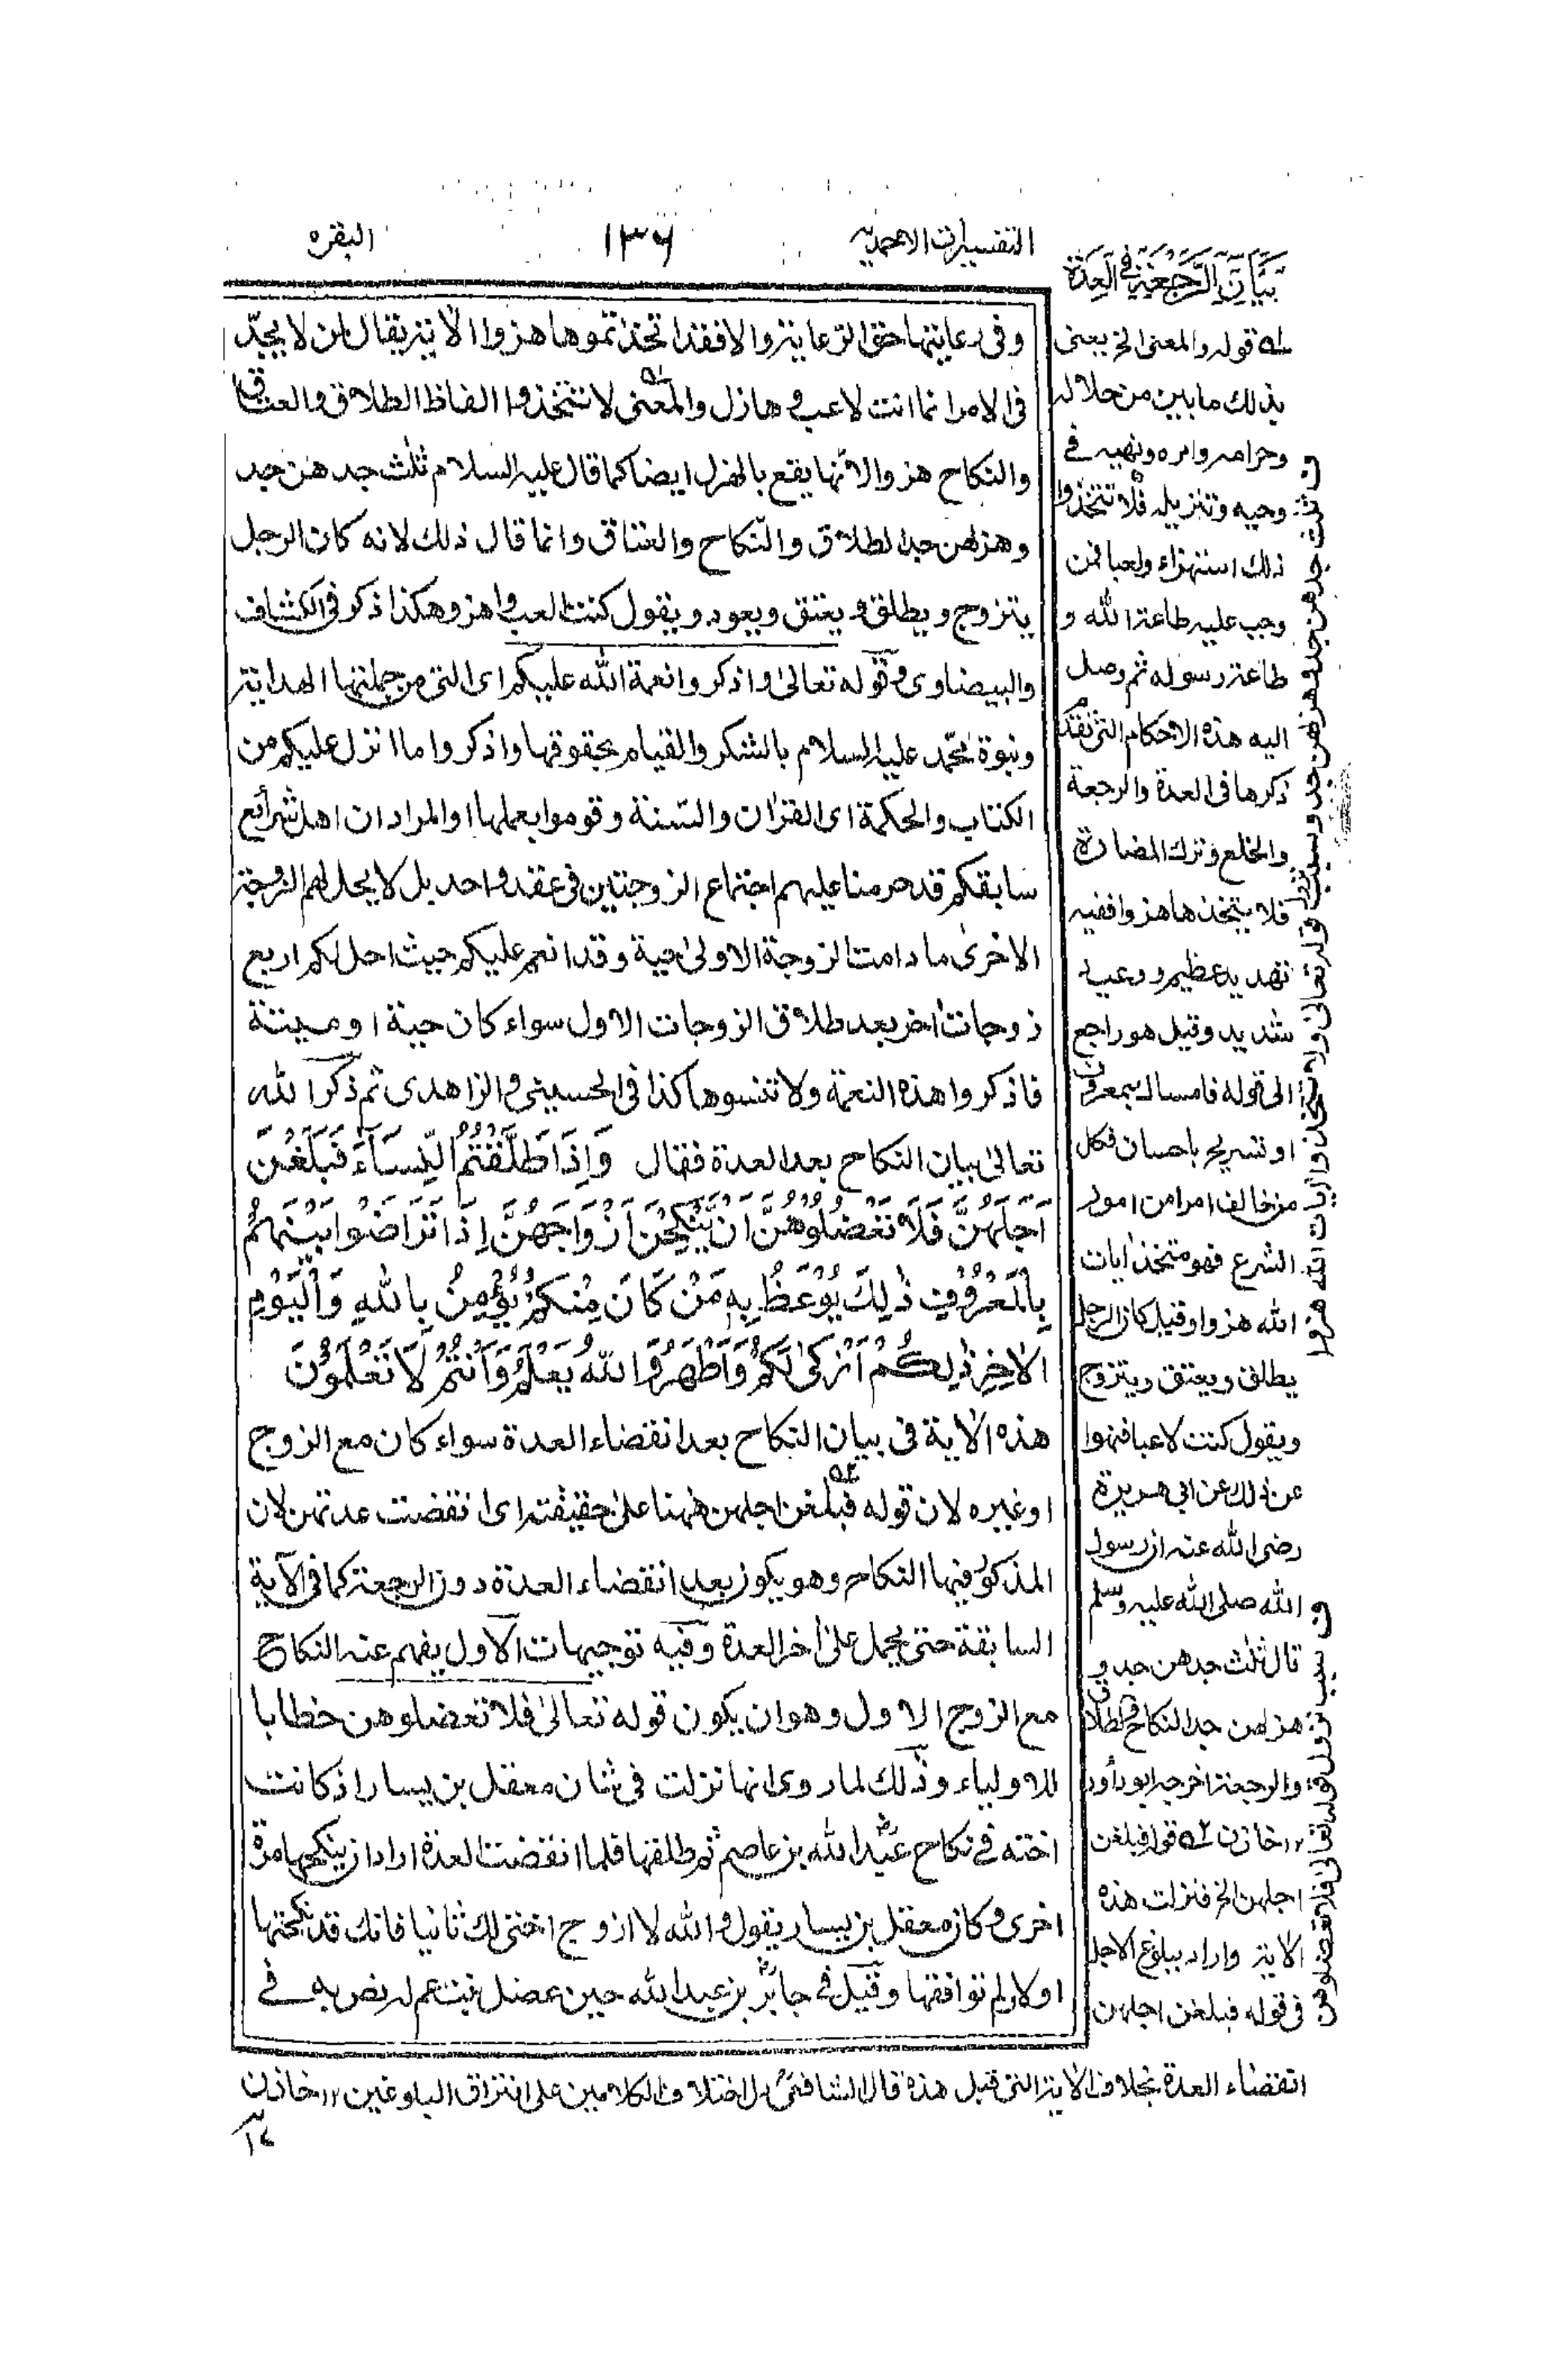 التفسيرات الاحمدية
١٣٦
البقره
بَيَانُ الرَّجْعَةِ فِي الْعِدَّةِ
وفى رعايتها حق الرعاية والا فقد اتخذتموها هزوا الاتية يقال لمن لا يجدّ
فى الامر انما انت لاعب وهازل والمعنى لا تتخذوا الفاظ الطلاق والعتاق
والنكاح هزوا لانّها يقع بالهزل ايضا كما قال عليه السلام ثلٰث جدهن جد
وهزلهن جد الطلاق والنّكاح والعتاق وانما قال ذلك لانه كان الرجل
يتزوج ويطلق ويعتق ويعود ويقول كنت العب واهزو هكذا ذكر فى الكشاف
والبيضاوى وقوله تعالىٰ واذكروا نعمة الله عليكم اى التى من جملتها الهداية
ونبوة محمّد عليه السلام بالشكر والقيام بحقوقها واذكروا ما انزل عليكم من
الكتاب والحكمة اى القرٰان والسّنة وقوموا بعملها او المراد ان اهل شرائع
سابقكم قد حرمنا عليهم اجتماع الزوجتين فى عقد واحد بل لا يحل لهم الزوجة
الاخرىٰ ما دامت الزوجة الاولىٰ حية وقد انعم عليكم حيث احل لكم اربع
زوجات اخر بعد طلاق الزوجات الاول سواء كان حية او ميتة
فاذكروا هذه النعمة ولا تنسوها كذا فى الحسينى والزاهدى ثم ذكر الله
تعالىٰ بيان النكاح بعد العدة فقال وَاِذَا طَلَّقْتُمُ النِّسَآءَ فَبَلَغْنَ
اَجَلَهُنَّ فَلَا تَعْضُلُوْهُنَّ اَنْ يَّنْكِحْنَ اَزْوَاجَهُنَّ اِذَا تَرَاضَوْا بَيْنَهُمْ
بِالْمَعْرُوْفِ ذٰلِكَ يُوْعَظُ بِهٖ مَنْ كَانَ مِنْكُمْ يُؤْمِنُ بِاللّٰهِ وَالْيَوْمِ
الْاٰخِرِ ذٰلِكُمْ اَزْكٰى لَكُمْ وَاَطْهَرُ وَاللّٰهُ يَعْلَمُ وَاَنْتُمْ لَا تَعْلَمُوْنَ
هذه الاٰية فى بيان النكاح بعد انقضاء العدة سواء كان مع الزوج
او غيره لان قوله فبلغن اجلهن ههنا على حقيقته اى انقضت عدتهن لان
المذكور فيها النكاح وهو يكون بعد انقضاء العدة دون الرجعة كما فى الآية
السابقة حتى يحمل علىٰ اٰخر العدة وفيه توجيهات الاول يفهم عنه النكاح
مع الزوج الاول وهو ان يكون قوله تعالىٰ فلا تعضلوهن خطابا
للاولياء وذلك لما روى انها نزلت فى شان معقل بن يسار اذ كانت
اخته فى نكاح عبد الله بن عاصم ثم طلقها فلما انقضت العدة اراد ان ينكحها مرة
اخرى وكان معقل بن يسار يقول والله لا ازوج اختى لك ثانيا فانك قد نكحتها
اولا ولم توافقها وقيل فى جابر بن عبد الله حين عضل بنت عم له نص به فى
لـه قوله والمعنى الخ يعنى
بذلك ما بين من حلاله
وحرامه وامره ونهيه فى
وحيه وتنزيله فلا تتخذوا
ذلك استهزاء ولعبا فمن
وجب عليه طاعة الله و
طاعة رسوله ثم وصل
اليه هذه الاحكام التى تقدم
ذكرها فى العدة والرجعة
والخلع وترك المضارة
فلا يتخذها هزوا ففيه
تهديد عظيم ووعيد
شديد وقيل هو راجع
الى قوله فامساك بمعروف
او تسريح باحسان فكل
من خالف امرا من امور
الشرع فهو متخذ اٰيات
الله هزوا وقيل كان الرجل
يطلق ويعتق ويتزوج
ويقول كنت لاعبا فنهوا
عن ذلك عن ابى هريرة
رضى الله عنه ان رسول
الله صلى الله عليه وسلم
قال ثلٰث جدهن جد و
هزلهن جد النكاح والطلاق
والرجعة اخرجه ابو داود
١٢ خازن ٢ـه قوله فبلغن
اجلهن الخ فنزلت هذه
الاٰية واراد ببلوغ الاجل
فى قوله فبلغن اجلهن
انقضاء العدة بخلاف الاٰية التى قبل هذه قال الشافعى دل اختلاف الكلامين على افتراق البلوغين ١٢ خازن
ف ثلث جدهن جد وهزلهن جد وسبب نزول قوله تعالى ولا تتخذوا اٰيات الله هزوا
ف سبب نزول قوله تعالىٰ فلا تعضلوهن